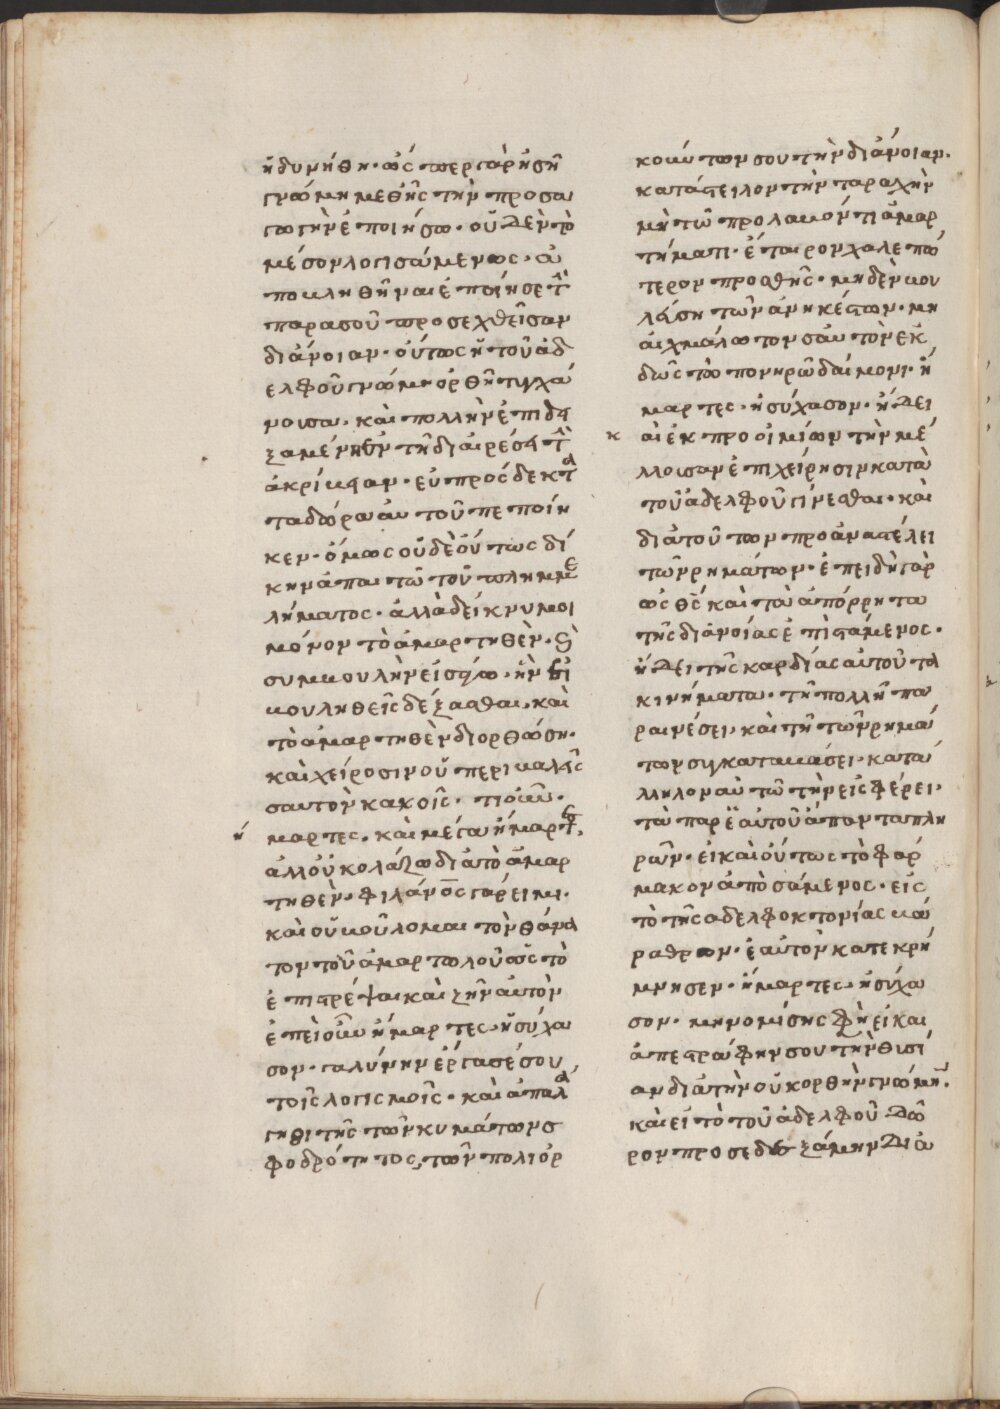 ἠδυνήθη· ὡς περ γὰρ ἡ σὴ
γνώμη μεθ' ἧς τὴν προσα
γωγὴν ἐποιήσω· οὐδὲν τὸ
μέσον λογισάμενος· ἀ
ποκληθῆναι ἐποίησε τ̀
παρὰ σοῦ προσεχθεῖσαν
διάνοιαν· οὕτως ἡ τοῦ ἀδ
ελφοῦ γνώμη ὀρθὴ τυγχά
νουσα· καὶ πολλὴν ἐπιδει
ξαμένη ἐν τῆ διαιρέσει τ̀
ἀκρίβειαν· εὐπρόσδεκτα
τα δῶρα αὐτοῦ πεποίη
κεν· ὅμως οὐδὲ οὕτως δί
κην ἀπαιτῶ τοῦ πλημμε
λήματος· ἀλλὰ δείκνυμοι
μόνον τὸ ἁμαρτηθὲν· καὶ
συμβουλὴν εἰσάγω· ἣν εἰ
βουληθεῖς δέξασθαι, καὶ
τὸ ἁμαρτηθὲν διορθώση·
καὶ χείροσιν οὐ περιβαλεῖς
σαυτὸν κακοῖς· τί οὖν·
ἥμαρτες, καὶ μέγα ἥμαρτες,
ἀλλ' οὐ κολάζω διὰ τὸ ἁμαρ
τηθὲν· φιλάνος γάρ εἰμι·
καὶ οὐ βούλομαι τὸν θάνα
τον τοῦ ἁμαρτωλοῦ ὡς τὸ
ἐπιστρέψαι καὶ ζῆν αὐτὸν
ἐπεὶ οὖν ἥμαρτες, ἡσύχα
σον· γαλήνην ἔργασαί σου
τοῖς λογισμοῖς· καὶ ἀπαλλά
γηθι τῆς τῶν κυμάτων σ
φοδρότητος, τῶν πολιορ
κούντων σου τὴν διάνοιαν·
κατάστειλον τὴν ταραχὴν
μὴ τῶ προλαβόντι ἁμαρ
τήματι· ἕταιρον χαλεπώ
τερον προσθῆς· μηδὲν βου
λεύση τῶν ἀνηκέστων· μὴ
αἰχμάλωτον σαυτὸν ἐκ
δῶς τῶ πονηρῶ δαίμονι· ἥ
μαρτες, ἡσύχασον· ἤδει
καὶ ἐκ προοιμίων τὴν μέ
λλουσαν ἐπιχείρησιν κατὰ
τοῦ ἀδελφοῦ γίνεσθαι· καὶ
διὰ τούτων προαναστέλει
τῶν ρημάτων· ἐπειδὴ γὰρ
ὡς θς καὶ τὰ ἀπόρρητα
τῆς διανοίας ἐπιστάμενος·
ἤδει τῆς καρδίας αὐτοῦ τὰ
κινήματα· τῆ πολλῆ πα
ραινέσει, καὶ τῆ τῶν ρημά
των συγκαταβάσει· κατά
λληλον αὐτῶ τὴν εἰσφέρει,
τὰ παρ' ἑαυτοῦ ἅπαντα πλη
ρῶν· εἰ καὶ οὕτως τὸ φάρ
μακον ἀποσάμενος· εἰς
τὸ τῆς ἀδελφοκτονίας βά
ραθρον· ἑαυτὸν κατεκρή
μνησεν· ἥμαρτες, ἡσύχα
σον· μὴ νομίσης φη εἰ και
ἀπεστράφην σου τὴν θυσί
αν διὰ τὴν οὐκ ὀρθὴν γνώμην·
καὶ εἰ τὸ τοῦ ἀδελφοῦ δῶ
ρον προσεδεξάμην διὰ